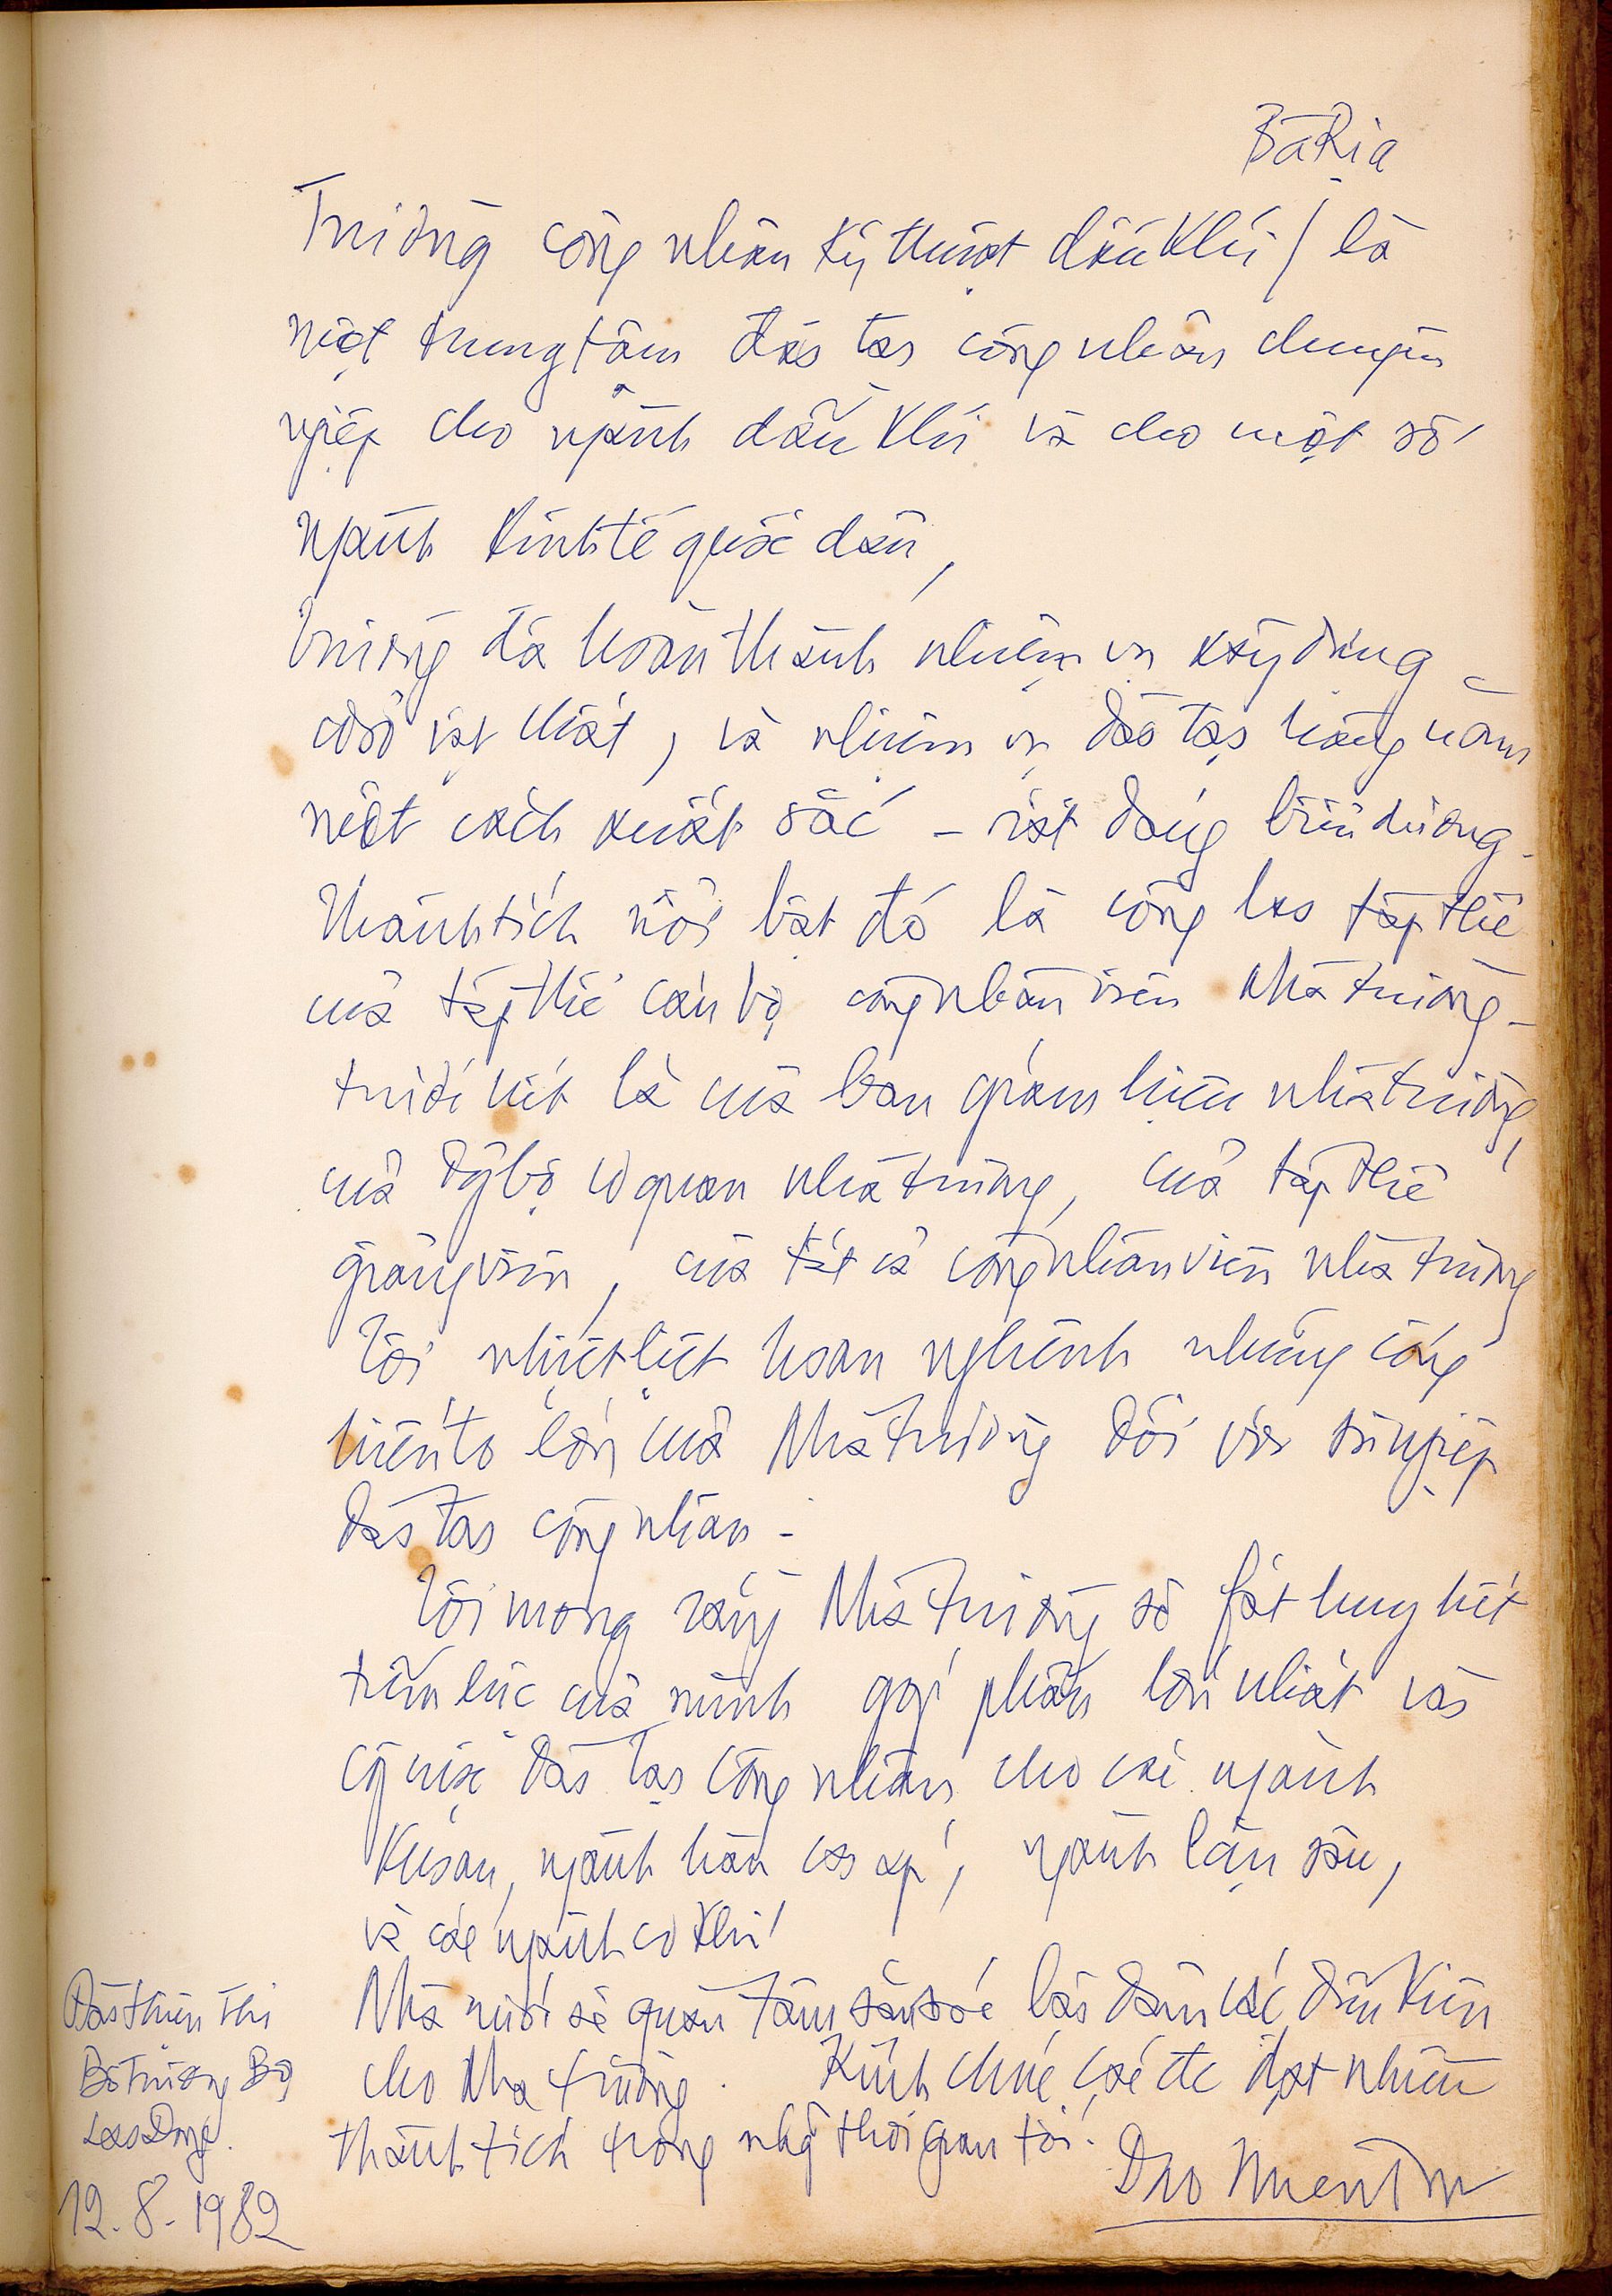 Bà Rịa
Trường công nhân kỹ thuật dầu khí / là
một trung tâm đào tạo công nhân chuyên
ngiệp cho ngành dầu khí và cho một số
ngành kinh tế quốc dân,
Trường đã hoàn thành nhiệm vụ xây dựng
cơ sở vật chất, và nhiệm vụ đào tạo hàng năm
một cách xuất sắc - rất đáng biểu dương.
Thành tích nổi bật đó là công lao tập thể
của tập thể cán bộ công nhân viên Nhà trường -
trước hết là của ban giám hiệu nhà trường,
của Đảng bộ cơ quan nhà trường, của tập thể
giảng viên, của tất cả công nhân viên nhà trường
Tôi nhiệt liệt hoan nghênh những cống
hiến to lớn của Nhà trường đối với sự ngiệp
đào tạo công nhân -
Tôi mong rằng Nhà trường sẽ fát huy hết
tiềm lực của mình góp phần lớn nhất vào
công cuộc đào tạo công nhân cho các ngành
Khoan, ngành hàn cao áp, ngành lặn sâu,
và các ngành cơ khí
Nhà nước sẽ quan tâm săn sóc bảo đảm các điều kiện
cho Nhà trường. Kính chúc các đc đạt nhiều
thành tích trong những thời gian tới.
Đào Thiện Thi
Bộ trưởng Bộ
Lao Động.
12.8.1982